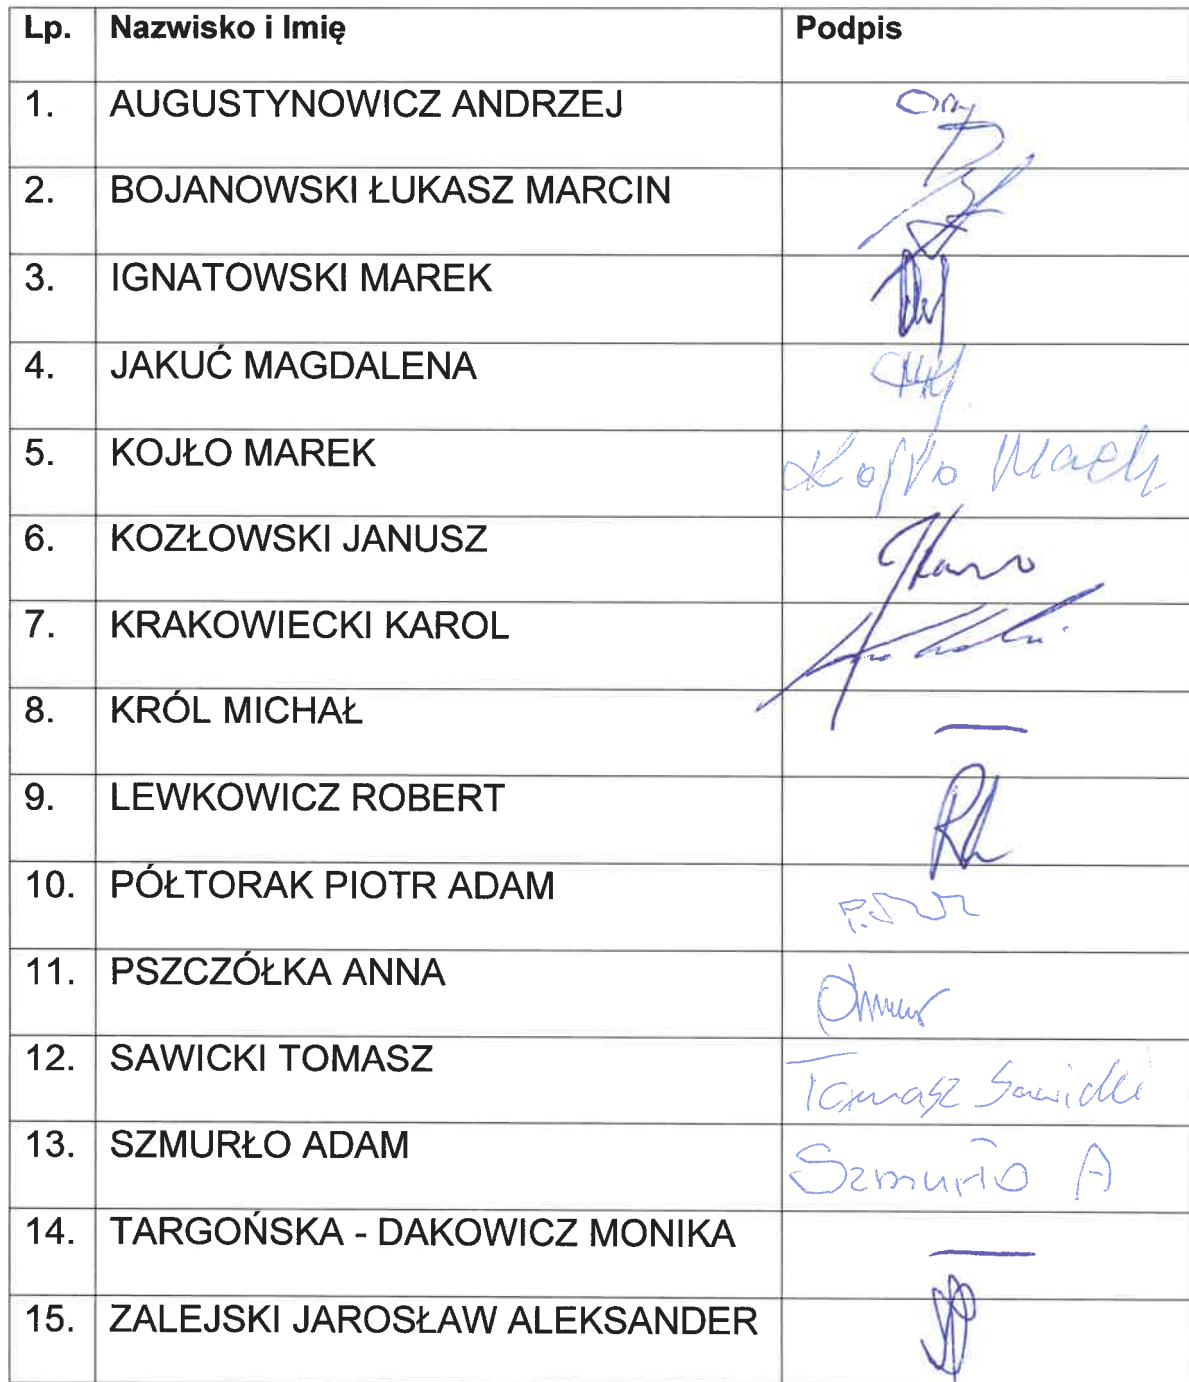 Lp. Nazwisko i Imię Podpis
1. AUGUSTYNOWICZ ANDRZEJ
2. BOJANOWSKI ŁUKASZ MARCIN
3. IGNATOWSKI MAREK
4. JAKUĆ MAGDALENA
5. KOJŁO MAREK Kojło Marek
6. KOZŁOWSKI JANUSZ
7. KRAKOWIECKI KAROL
8. KRÓL MICHAŁ —
9. LEWKOWICZ ROBERT
10. PÓŁTORAK PIOTR ADAM
11. PSZCZÓŁKA ANNA
12. SAWICKI TOMASZ Tomasz Sawicki
13. SZMURŁO ADAM Szmurło A
14. TARGOŃSKA - DAKOWICZ MONIKA —
15. ZALEJSKI JAROSŁAW ALEKSANDER